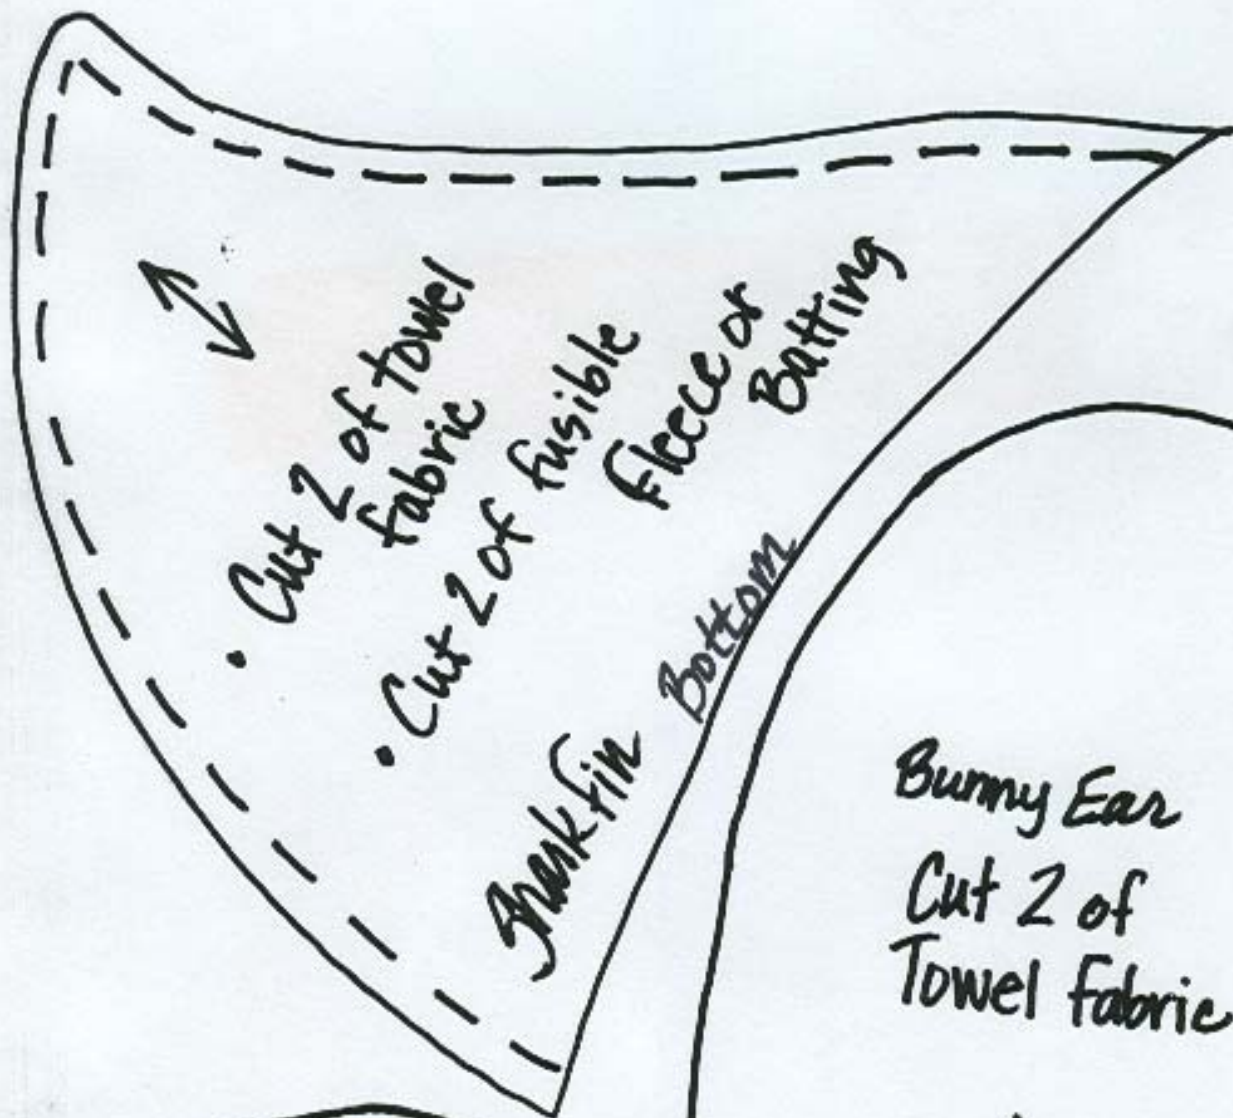 • Cut 2 of towel
fabric
• Cut 2 of fusible
fleece or
Batting
Shark fin
Bottom
Bunny Ear
Cut 2 of
Towel fabric